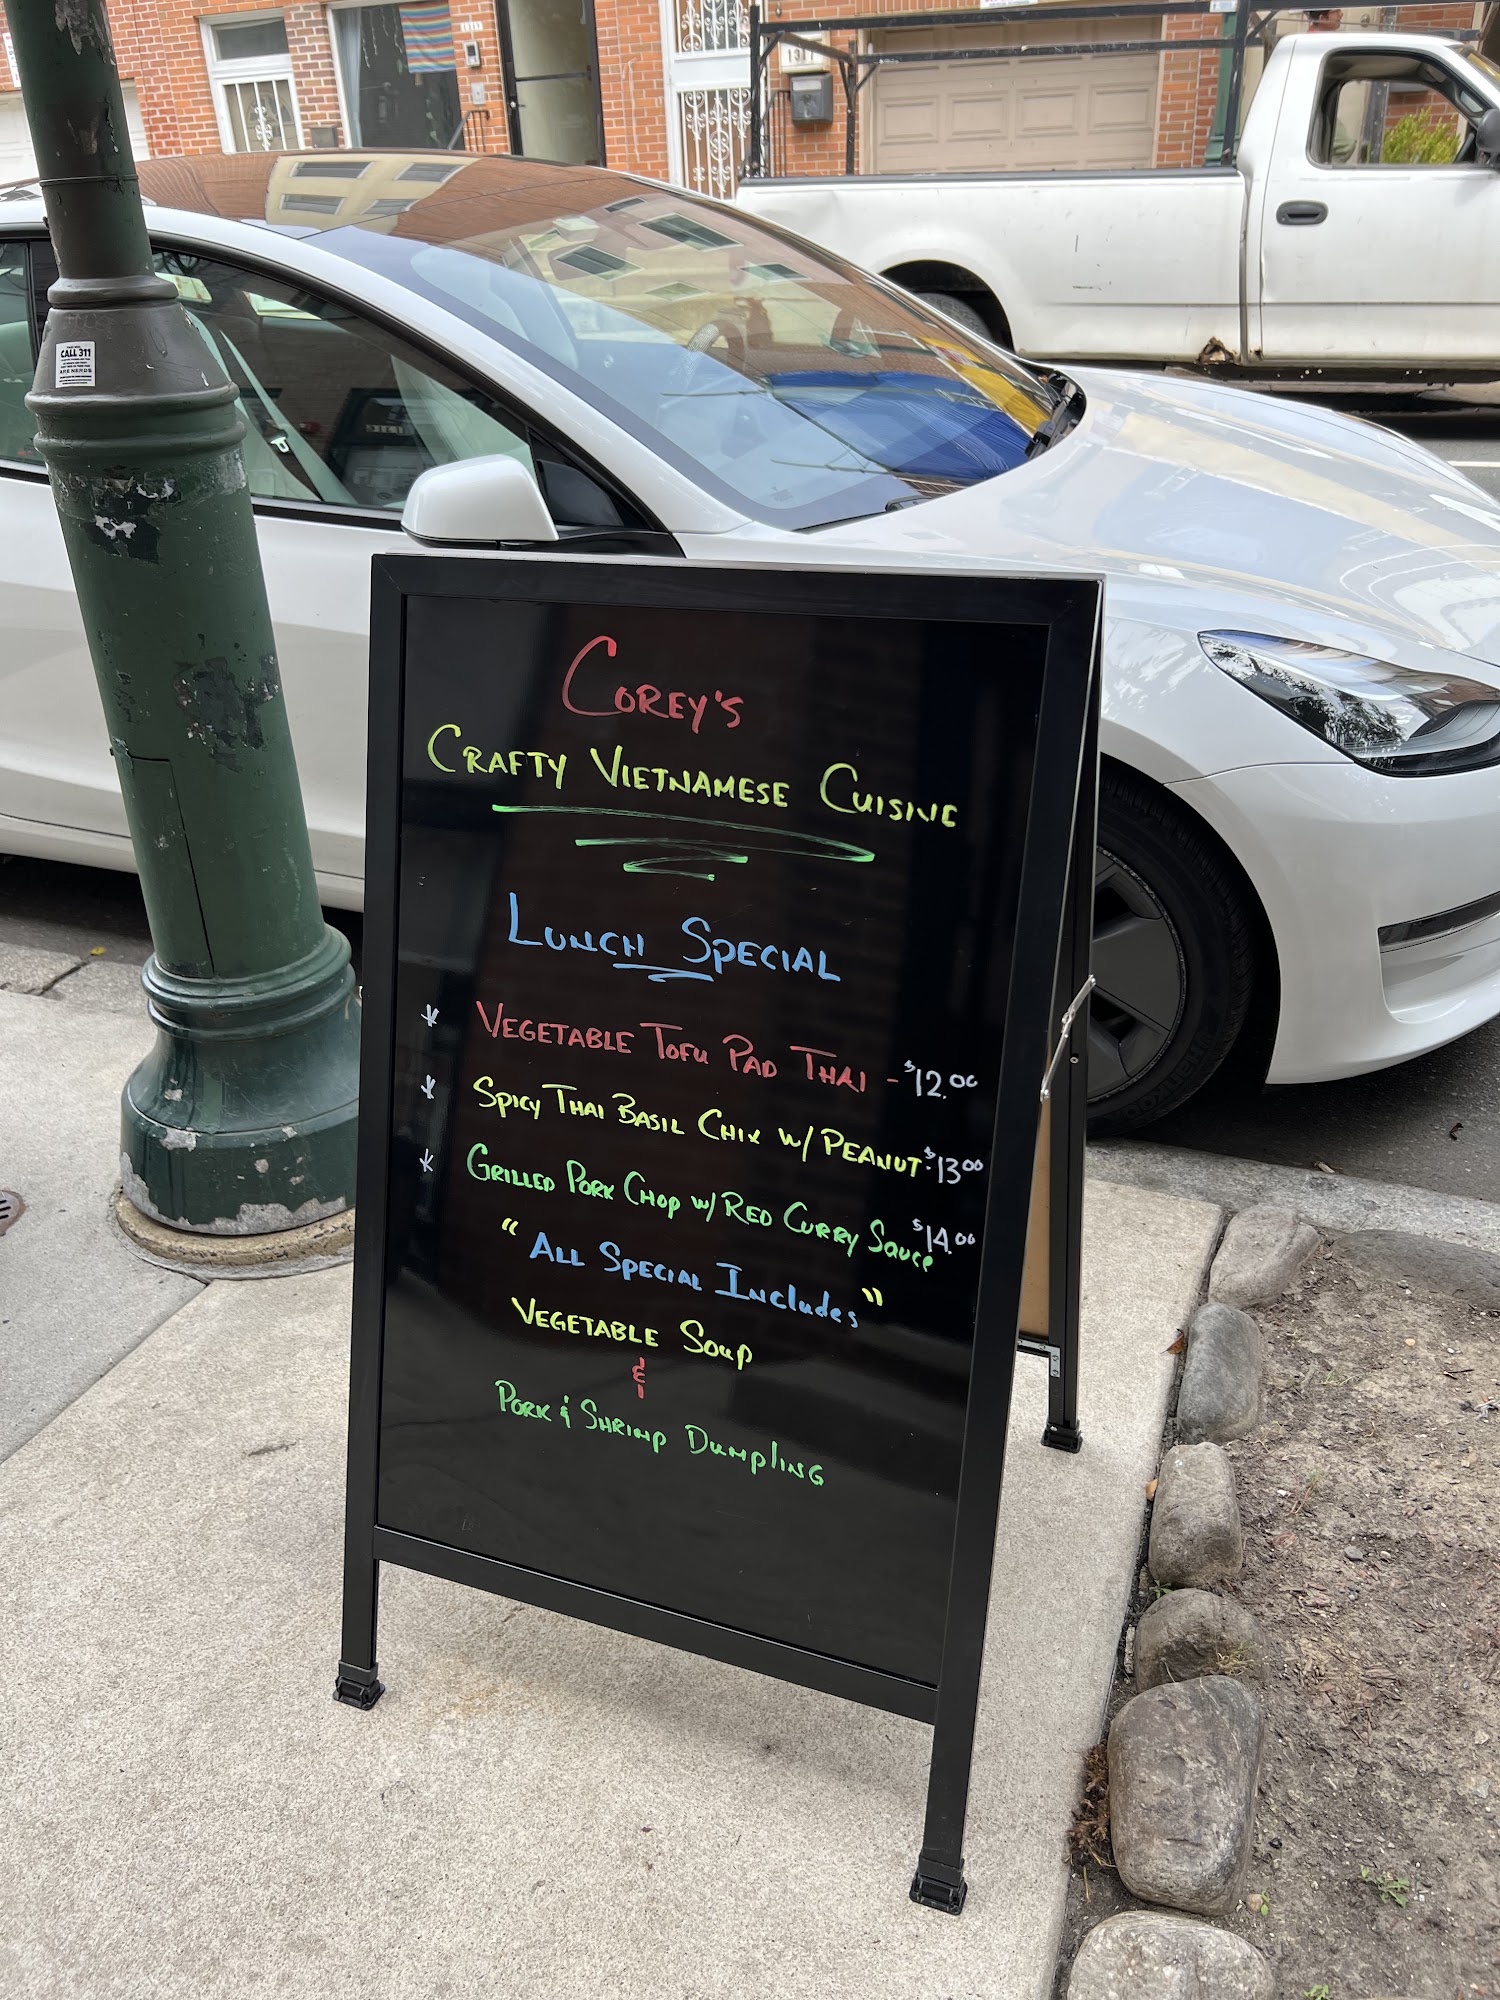 CALL 311
ARE NERDS
COREY'S
CRAFTY VIETNAMESE CUISINE
LUNCH SPECIAL
* VEGETABLE TOFU PAD THAI - $12.00
* SPICY THAI BASIL CHIX W/ PEANUT - $13.00
* GRILLED PORK CHOP W/ RED CURRY SAUCE $14.00
"ALL SPECIAL INCludes"
VEGETABLE SOUP
&
PORK & SHRIMP DUMPlING